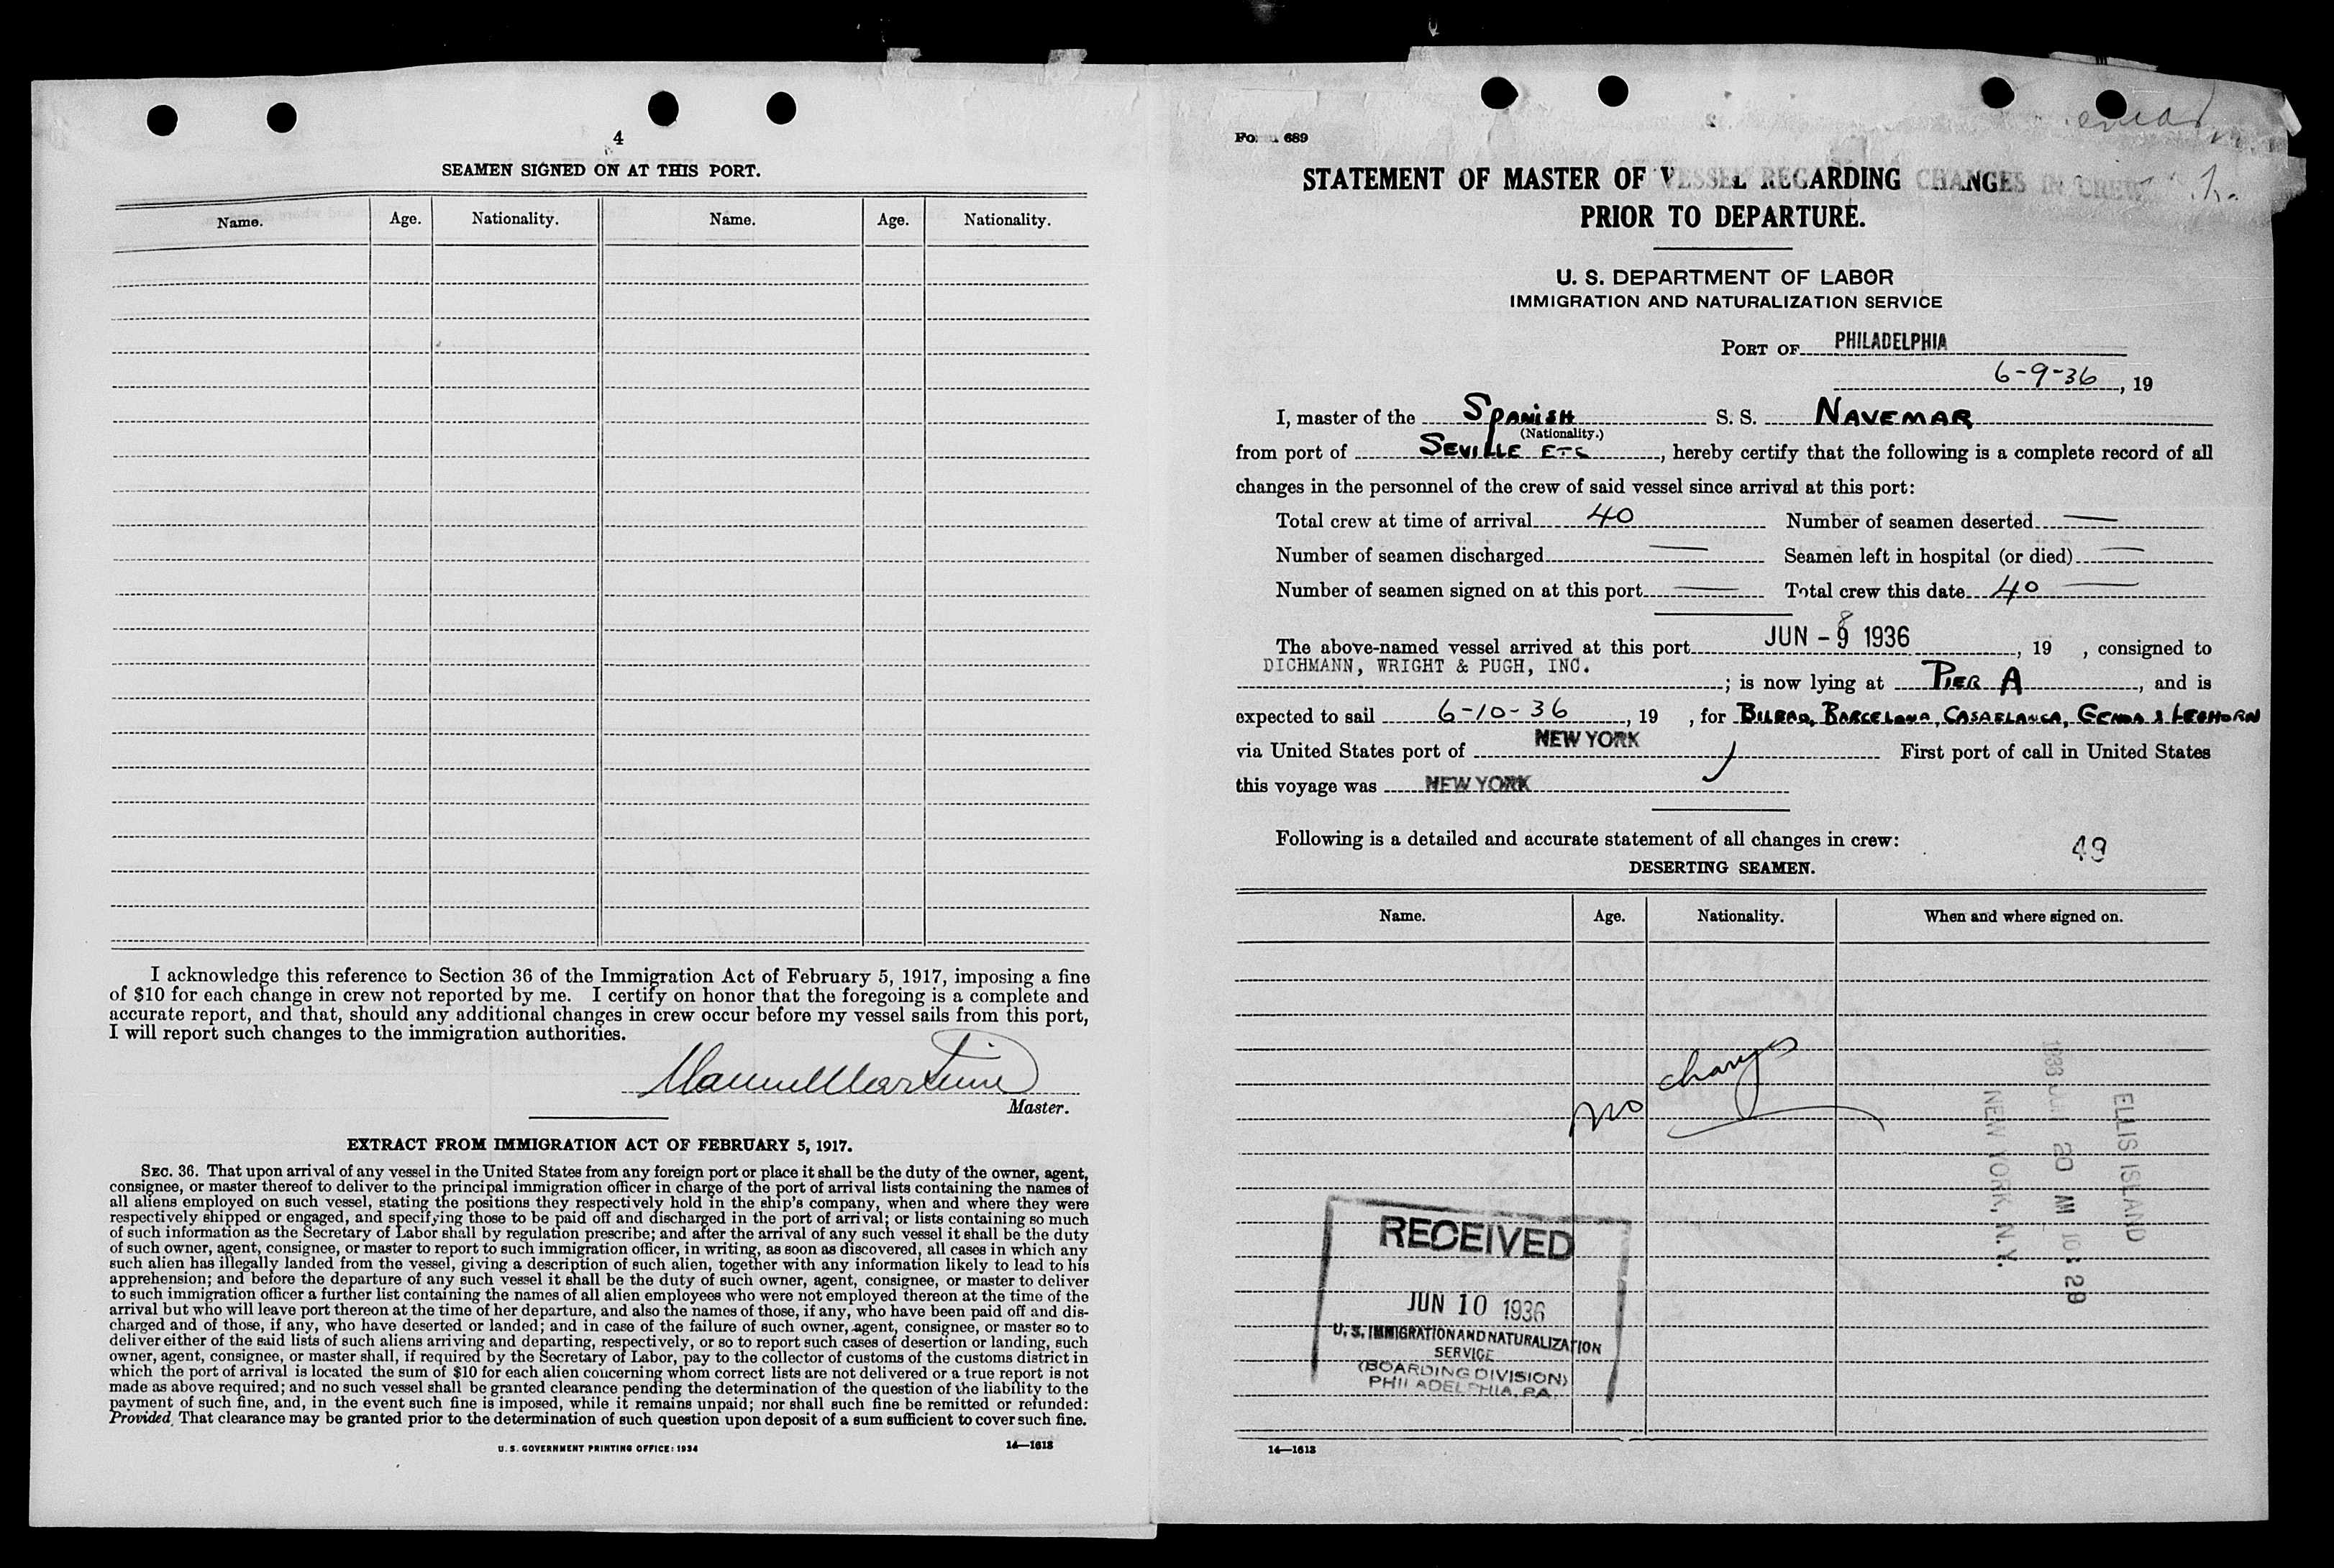 4
SEAMEN SIGNED ON AT THIS PORT.
Name. Age. Nationality. Name. Age. Nationality.
I acknowledge this reference to Section 36 of the Immigration Act of February 5, 1917, imposing a fine
of $10 for each change in crew not reported by me. I certify on honor that the foregoing is a complete and
accurate report, and that, should any additional changes in crew occur before my vessel sails from this port,
I will report such changes to the immigration authorities.
Master.
EXTRACT FROM IMMIGRATION ACT OF FEBRUARY 5, 1917.
SEC. 36. That upon arrival of any vessel in the United States from any foreign port or place it shall be the duty of the owner, agent,
consignee, or master thereof to deliver to the principal immigration officer in charge of the port of arrival lists containing the names of
all aliens employed on such vessel, stating the positions they respectively hold in the ship's company, when and where they were
respectively shipped or engaged, and specifying those to be paid off and discharged in the port of arrival; or lists containing so much
of such information as the Secretary of Labor shall by regulation prescribe; and after the arrival of any such vessel it shall be the duty
of such owner, agent, consignee, or master to report to such immigration officer, in writing, as soon as discovered, all cases in which any
such alien has illegally landed from the vessel, giving a description of such alien, together with any information likely to lead to his
apprehension; and before the departure of any such vessel it shall be the duty of such owner, agent, consignee, or master to deliver
to such immigration officer a further list containing the names of all alien employees who were not employed thereon at the time of the
arrival but who will leave port thereon at the time of her departure, and also the names of those, if any, who have been paid off and dis-
charged and of those, if any, who have deserted or landed; and in case of the failure of such owner, agent, consignee, or master so to
deliver either of the said lists of such aliens arriving and departing, respectively, or so to report such cases of desertion or landing, such
owner, agent, consignee, or master shall, if required by the Secretary of Labor, pay to the collector of customs of the customs district in
which the port of arrival is located the sum of $10 for each alien concerning whom correct lists are not delivered or a true report is not
made as above required; and no such vessel shall be granted clearance pending the determination of the question of the liability to the
payment of such fine, and, in the event such fine is imposed, while it remains unpaid; nor shall such fine be remitted or refunded:
Provided, That clearance may be granted prior to the determination of such question upon deposit of a sum sufficient to cover such fine.
U. S. GOVERNMENT PRINTING OFFICE: 1934 14—1613
689
STATEMENT OF MASTER OF VESSEL REGARDING CHANGES IN CREW
PRIOR TO DEPARTURE.
U. S. DEPARTMENT OF LABOR
IMMIGRATION AND NATURALIZATION SERVICE
PORT OF PHILADELPHIA
6-9-36, 19
I, master of the SPANISH S. S. NAVEMAR
(Nationality.)
from port of SEVILLE ETC, hereby certify that the following is a complete record of all
changes in the personnel of the crew of said vessel since arrival at this port:
Total crew at time of arrival 40 Number of seamen deserted —
Number of seamen discharged — Seamen left in hospital (or died) —
Number of seamen signed on at this port — Total crew this date 40 —
The above-named vessel arrived at this port JUN - 9 1936, 19 , consigned to
DICHMANN, WRIGHT & PUGH, INC.
; is now lying at PIER A, and is
expected to sail 6-10-36, 19 , for BILBAO, BARCELONA, CASABLANCA, GENOA & LEGHORN
via United States port of NEW YORK First port of call in United States
this voyage was NEW YORK
Following is a detailed and accurate statement of all changes in crew:
49
DESERTING SEAMEN.
Name. Age. Nationality. When and where signed on.
no changes
RECEIVED
JUN 10 1936
U. S. IMMIGRATION AND NATURALIZATION
SERVICE
(BOARDING DIVISION)
PHILADELPHIA, PA.
ELLIS ISLAND
20 M 10:29
NEW YORK, N.Y.
14—1613